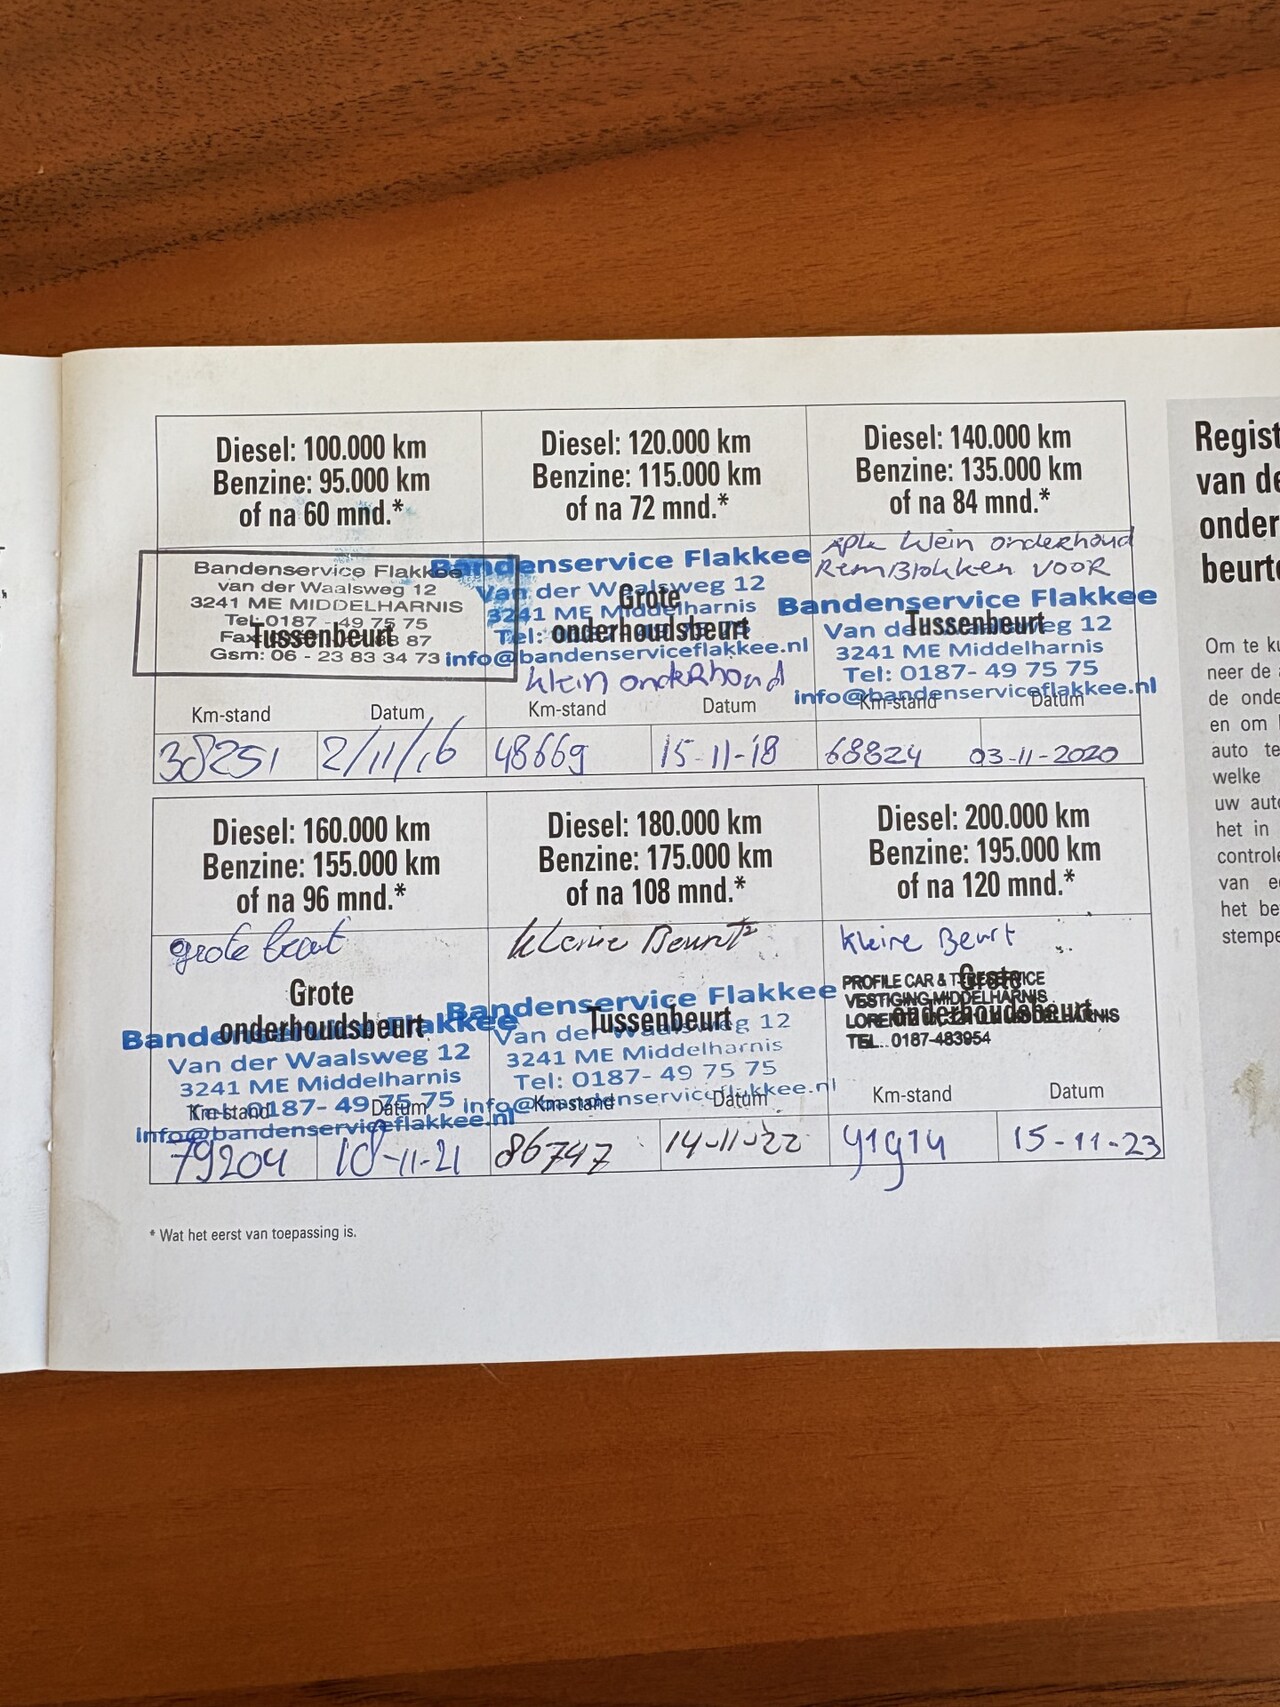 Diesel: 100.000 km
Benzine: 95.000 km
of na 60 mnd.*
Bandenservice Flakkee
van der Waalsweg 12
3241 ME MIDDELHARNIS
Tel. 0187 - 49 75 75
Fax 87
Gsm: 06 - 23 83 34 73
Tussenbeurt
Km-stand Datum
38251 2/11/16
Diesel: 120.000 km
Benzine: 115.000 km
of na 72 mnd.*
Bandenservice Flakkee
Van der Waalsweg 12
3241 ME Middelharnis
Tel:
info@bandenserviceflakkee.nl
Grote
onderhoudsbeurt
klein onderhoud
Km-stand Datum
48669 15-11-18
Diesel: 140.000 km
Benzine: 135.000 km
of na 84 mnd.*
klein onderhoud
RemBlokken VOOR
Bandenservice Flakkee
Van der Waalsweg 12
3241 ME Middelharnis
Tel: 0187- 49 75 75
info@bandenserviceflakkee.nl
Tussenbeurt
Km-stand Datum
68824 03-11-2020
Diesel: 160.000 km
Benzine: 155.000 km
of na 96 mnd.*
grote beurt
Grote
onderhoudsbeurt
Bandenservice Flakkee
Van der Waalsweg 12
3241 ME Middelharnis
Tel: 0187- 49 75 75
info@bandenserviceflakkee.nl
Km-stand Datum
79204 10-11-21
Diesel: 180.000 km
Benzine: 175.000 km
of na 108 mnd.*
kleine Beurt
Bandenservice Flakkee
Tussenbeurt
Van der Waalsweg 12
3241 ME Middelharnis
Tel: 0187- 49 75 75
info@bandenserviceflakkee.nl
Km-stand Datum
86747 14-11-22
Diesel: 200.000 km
Benzine: 195.000 km
of na 120 mnd.*
kleine Beurt
PROFILE CAR & TYRESERVICE
VESTIGING MIDDELHARNIS
MIDDELHARNIS
TEL. 0187-483954
Grote
onderhoudsbeurt
Km-stand Datum
91914 15-11-23
* Wat het eerst van toepassing is.
Regist
van de
onder
beurte
Om te ku
neer de
de onde
en om
auto te
welke
uw auto
het in
controle
van e
het be
stempe